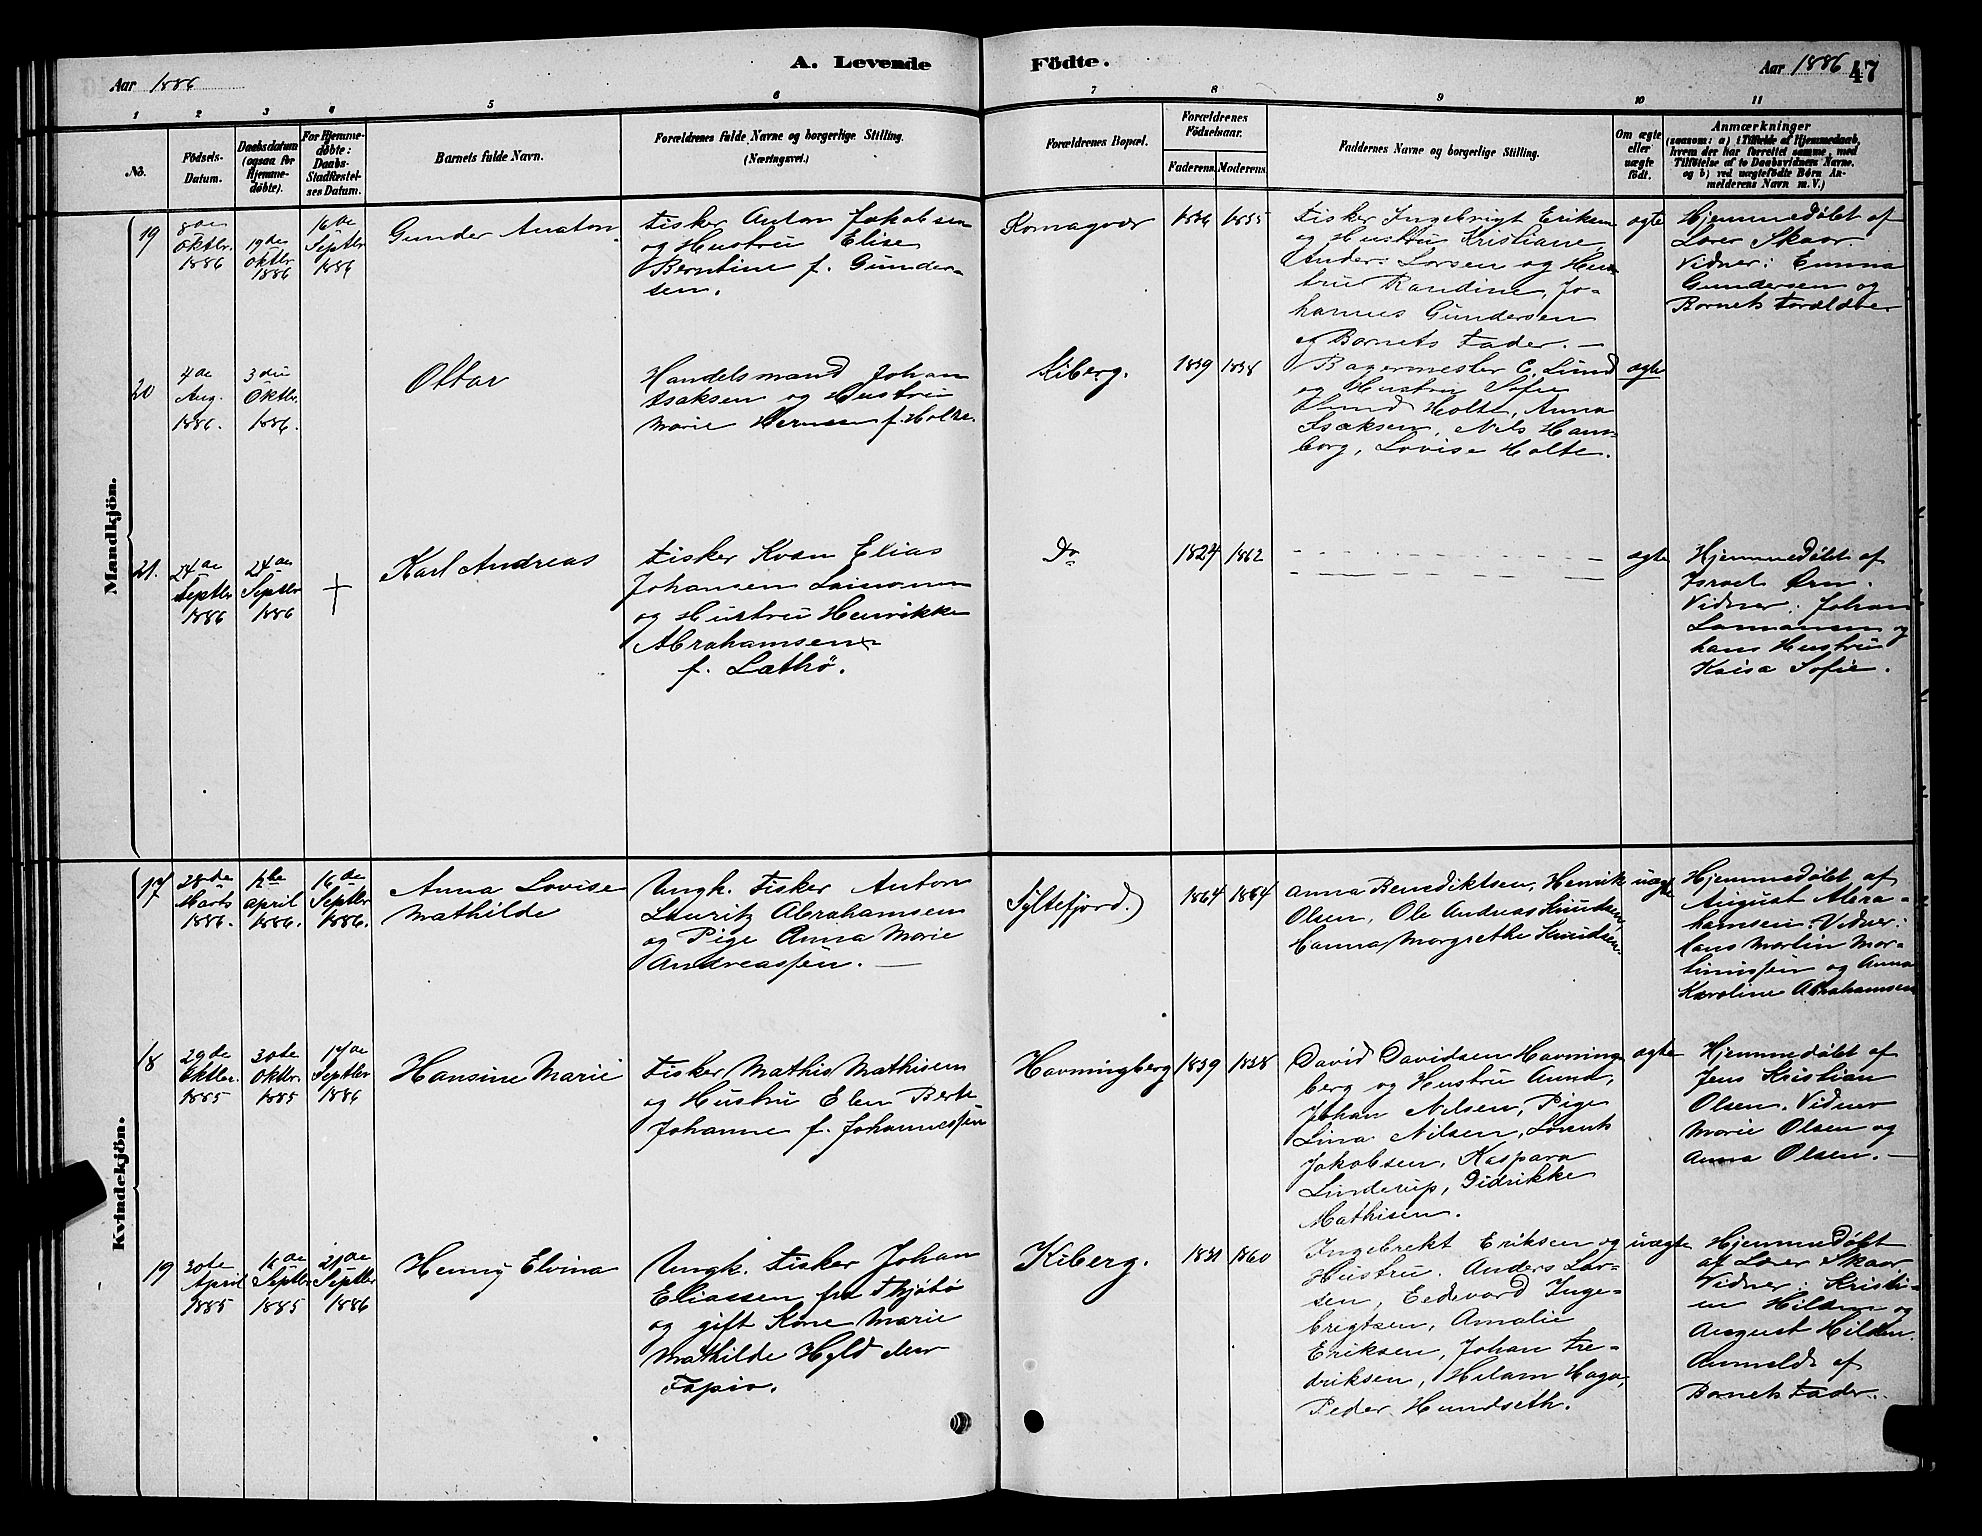 Aar 1886
A. Levende
Födte.
Aar 1886
47
1 2 3 4 5 6 7 8 9 10 11
No.
Födsels-
Datum.
Daabsdatum
(ogsaa for
Hjemme-
döbte).
For Hjemme-
döbte:
Daabs-
Stadfæstel-
ses Datum.
Barnets fulde Navn.
Forældrenes fulde Navne og borgerlige Stilling.
(Næringsvei.)
Forældrenes Bopæl.
Forældrenes
Födselsaar.
Faderens. Moderens.
Faddernes Navne og borgerlige Stilling.
Om ægte
eller
uægte
födt.
Anmærkninger
(saasom: a) i Tilfælde af Hjemmedaab,
hvem der har forrettet samme, med
Tilföielse af to Daabsvidners Navne,
og b) ved uægtefödte Börn An-
melderens Navn m.V.)
Mandkjön.
19
8de
Oktbr.
1886
19de
Oktbr
1886
16de
Septbr
1886
Gunder Anton
Fisker Anton Jakobsen
og Hustru Elise
Berntine f. Gunder-
sen.
Komagvær
1836 1835
Fisker Ingebrigt Eriksen
og Hustru Kristiane,
Anders Larsen og Hus-
tru Randine, Jo-
hannes Gundersen
og Barnets Fader. —
ægte
Hjemmedøbt af
Lærer Skaar.
Vidner: Emma
Gundersen og
Barnets Forældre
20
4de
Aug.
1886.
3die
Oktbr.
1886.
Ottar
Handelsmand Johan
Isaksen og Hustru
Marie f. Holte.
Kiberg.
1839 1838
Bagermester C. Lund
og Hustru Sofie
Lund Holte, Anna
Isaksen, Nils Ham-
borg, Lovise Holte.
ægte
21.
24de
Septbr
1886
24de
Septbr
1886
+
Karl Andreas
Fisker Kvæn Elias
Johansen
og Hustru Henrikke
Abrahamsen
f. Lathö.
Do
1824 1862
ægte
Hjemmedøbt af
Israel Örn.
Vidner: Johan
og
hans Hustru
Kaisa Sofie.
Kvindekjön.
17
28de
Marts
1886.
12te
April
1886.
16de
Septbr
1886.
Anna Lovise
Mathilde
Ungk. Fisker Anton
Lauritz Abrahamsen
og Pige Anna Marie
Andreassen. —
Syltefjord.
1864 1864
Anna Benediktsen, Henrik
Olsen, Ole Andreas Knudsen,
Hanna Margrethe Knudsen.
uægte
Hjemmedøbt af
August Abra-
hamsen. Vidner:
Hans Martin Mar-
tinussen og Anna
Karoline Abrahamsen
18
29de
Oktbr.
1885
30te
Oktbr.
1885
17de
Septbr
1886
Hansine Marie
Fisker Mathis Mathisen
og Hustru Elen Berte
Johanne f. Johannessen
Havningberg
1839 1838
David Davidsen Havning-
berg og Hustru Anna,
Johan Nilsen, Pige
Lina Nilsen, Lorents
Jakobsen, Kaspara
Linderup, Didrikke
Mathisen.
ægte
Hjemmedøbt af
Jens Kristian
Olsen. Vidner
Marie Olsen og
Anna Olsen. —
19
30te
April
1885
16de
Septbr
1885
21de
Septbr
1886
Henny Elvina
Ungk. Fisker Johan
Eliassen fra Thjötö
og gift Kone Marie
Mathilde
Tapio.
Kiberg.
1831 1860
Ingebrekt Eriksen og
Hustru. Anders Lar-
sen, Eedevard Inge-
brigtsen, Amalie
Eriksen, Johan Fre-
driksen, Hilam Haga,
Peder Hundseth.
uægte
Hjemmedøbt
af Lærer Skaar
Vidner: Kristi-
en Hilden og
August Hilden.
Anmeldt af
Barnets Fader.